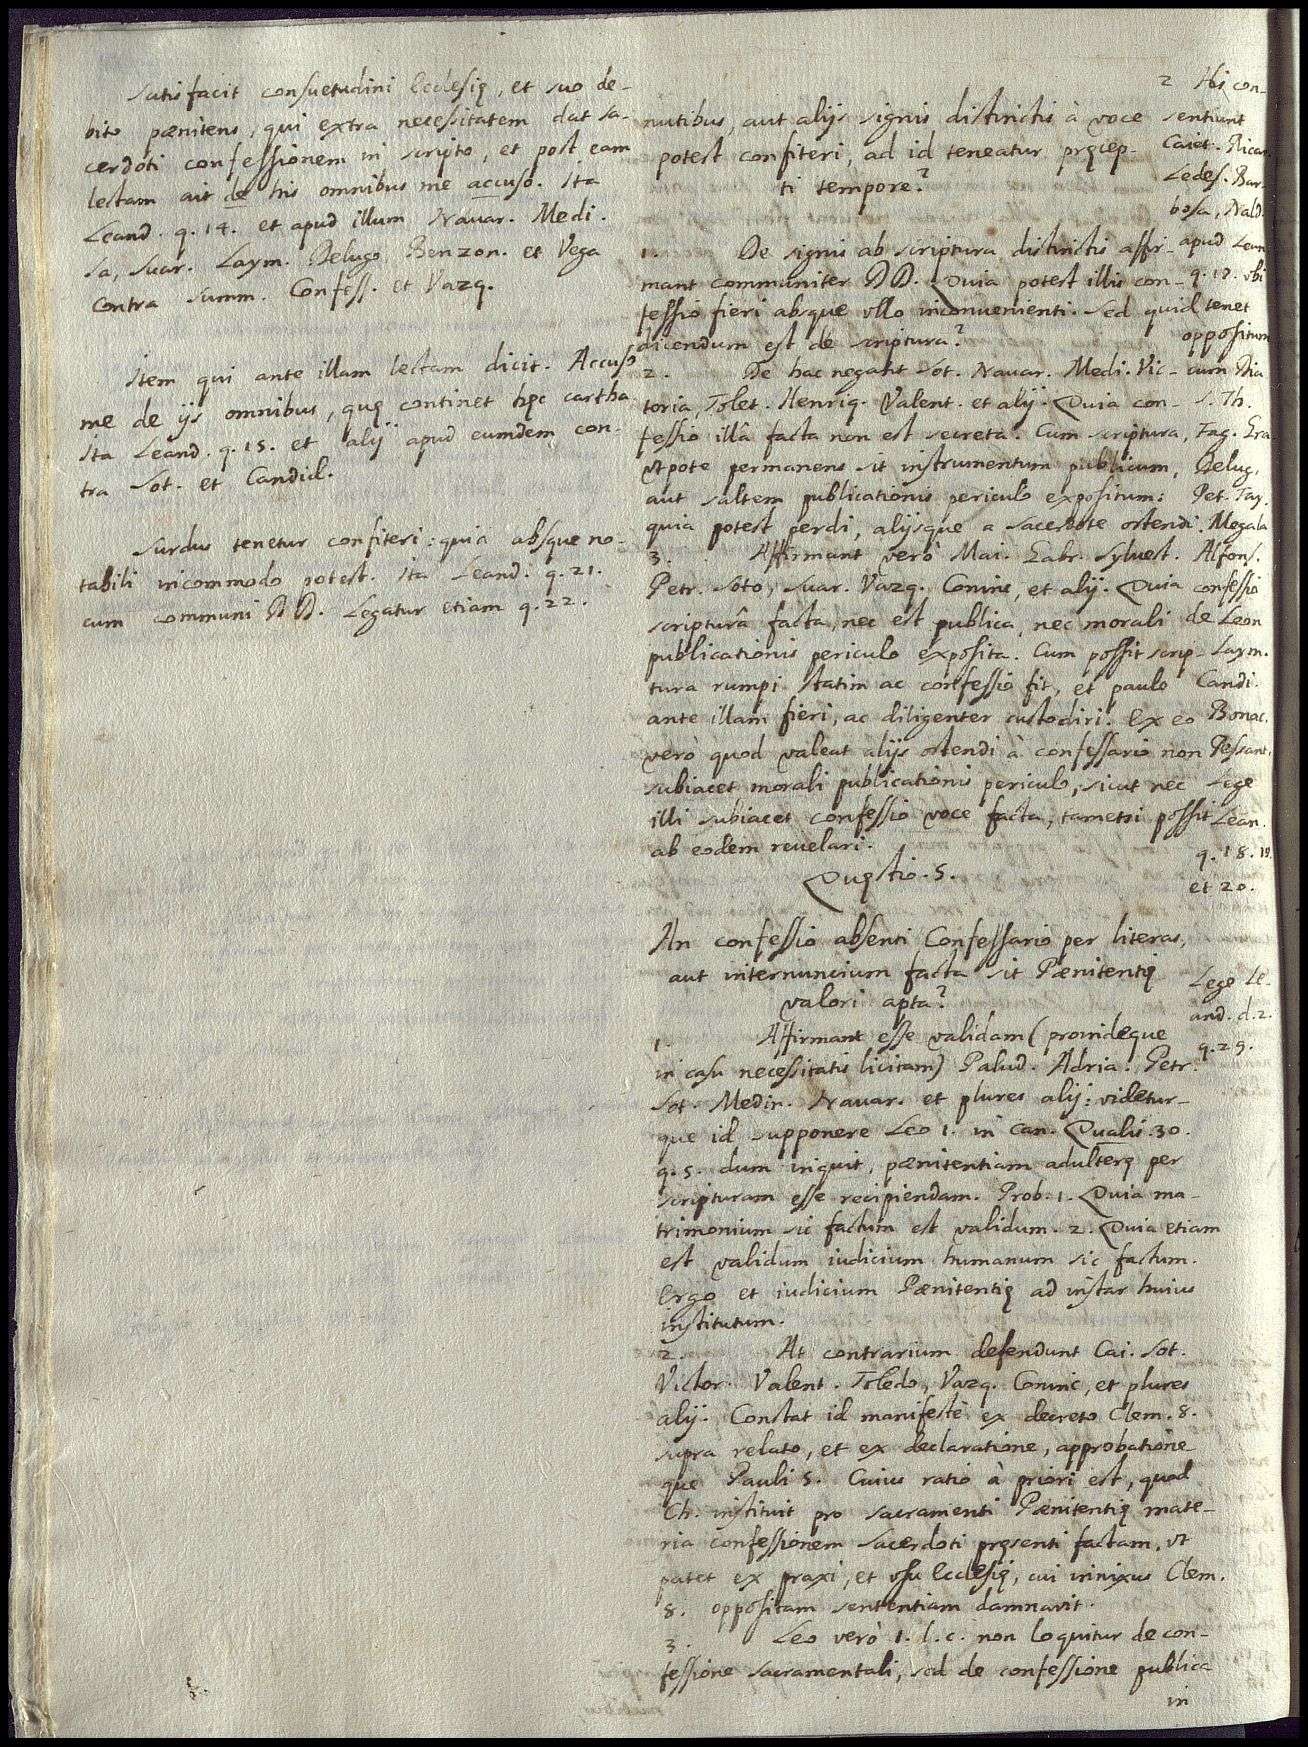 satisfacit consuetudini Ecclesię, et suo de-
bito pænitens, qui extra necessitatem dat sa-
cerdoti confessionem in scripto, et post eam
lectam ait de his omnibus me accuso. Ita
Leand. q. 14. et apud illum Navar. Medi.
sa, Suar. Laym. Delugo, Benzon. et Vega
contra summ. Confess. et Vazq.
Item qui ante illam lectam dicit. Accuso
me de ijs omnibus, quę continet hęc cartha
Ita Leand. q. 15. et alij apud eumdem, con-
tra Sot. et Candid.
Surdus tenetur confiteri: quia absque no-
tabili incommodo potest. Ita Leand. q. 21.
cum communi DD. Legatur etiam q. 22.
nutibus, aut alijs signis distinctis à voce
potest confiteri, ad id teneatur pręcep-
ti tempore?
1. De signis ab scriptura distinctis affir-
mant communiter DD. Quia potest illis con-
fessio fieri absque vllo inconuenienti. Sed quid
dicendum est de scriptura?
2. De hac negant Sot. Nauar. Medi. Vic-
toria, Tolet. Henriq. Valent. et alij. Quia con-
fessio illâ facta non est secreta. Cum scriptura,
vtpote permanens sit instrumentum publicum,
aut saltem publicationis periculo expositum:
quia potest perdi, alijsque a sacerdote ostendi.
3. Affirmant verò Mai. Gabr. Sylvest.
Petr. Soto, Suar. Vazq. Coninc, et alij. Quia
scripturâ facta, nec est publica, nec morali
publicationis periculo exposita. Cum possit scrip-
tura rumpi statim ac confessio fit, et paulo
ante illam fieri, ac diligenter custodiri. Ex eo
verò quod valeat alijs ostendi à confessario non
subiacet morali publicationis periculo, sicut nec
illi subiacet confessio voce facta, tametsi possit
ab eodem reuelari.
Quęstio. 5.
An confessio absenti Confessario per literas,
aut internuncium facta sit Pænitentię
valori apta?
1. Affirmant esse validam (proindeque
in casu necessitatis licitam) Palud. Adria. Petr.
Sot. Medin. Nauar. et plures alij: videtur-
que id supponere Leo 1. in can. Qualis. 30.
q. 5. dum inquit, pænitentiam adulterę per
scripturam esse recipiendam. Prob. 1. Quia ma-
trimonium sic factum est validum. 2. Quia etiam
est validum iudicium humanum sic factum.
Ergo et iudicium Pænitentię ad instar huius
institutum.
2. At contrarium defendunt Cai. Sot.
Victor. Valent. Toledo, Vazq. Coninc, et plures
alij. Constat id manifestè ex decreto Clem. 8.
supra relato, et ex declaratione, approbatione
que Pauli 5. Cuius ratio à priori est, quod
Ch. instituit pro sacramenti Pænitentię mate-
ria confessionem sacerdoti pręsenti factam, vt
patet ex praxi, et vsu Ecclesię, cui innixus Clem.
8. oppositam sententiam damnavit.
3. Leo verò 1. l. c. non loquitur de con-
fessione sacramentali, sed de confessione publica
in
2 His con-
sentiunt
Caiet. Ricar.
Ledes. Bar-
bosa, Nald.
apud Lean
q. 18. vbi
tenet
oppositum
cum Dia
S. Th.
Fag. Gra
Delug.
Pet.
Megala
Alfons.
confessio
de Leon
Laym.
Candi.
Bonac.
Lege
Lean.
q. 18. 19.
et 20.
Lege Le-
and. d. 2.
q. 25.